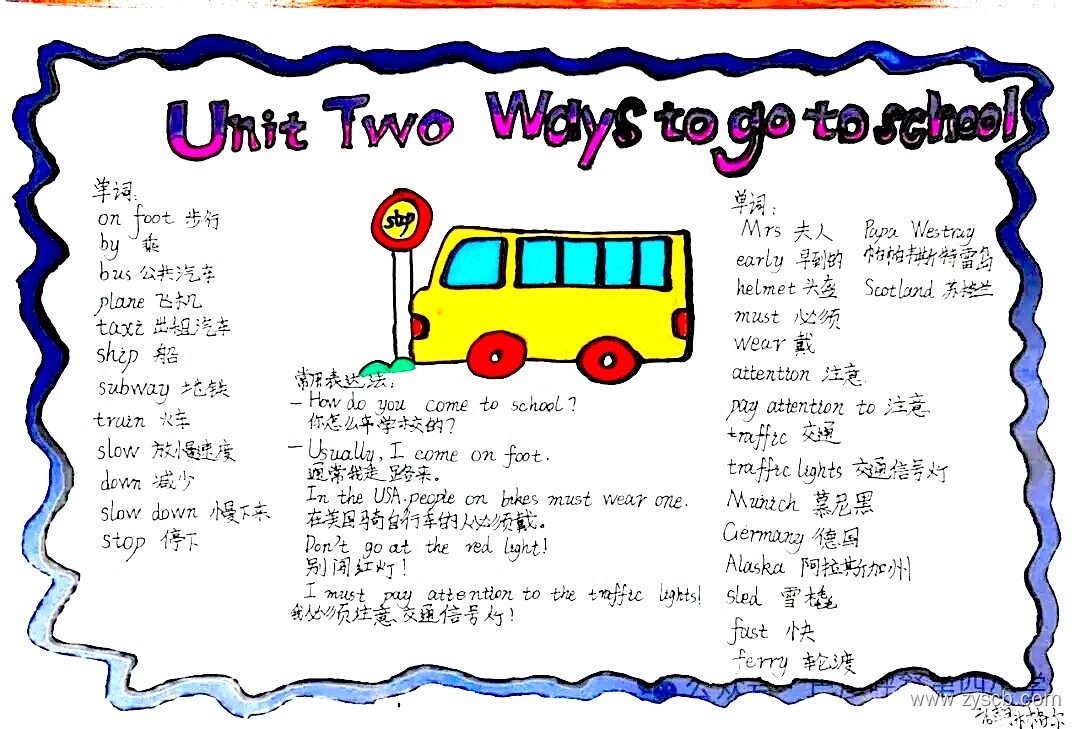 Unit Two Ways to go to school
单词:
on foot 步行
by 乘
bus 公共汽车
plane 飞机
taxi 出租汽车
ship 船
subway 地铁
train 火车
slow 放慢速度
down 减少
slow down 慢下来
stop 停下
stop
常用表达法:
- How do you come to school?
你怎么来学校的?
- Usually, I come on foot.
通常我走路来。
In the USA people on bikes must wear one.
在美国骑自行车的人必须戴。
Don't go at the red light!
别闯红灯!
I must pay attention to the traffic lights!
我必须注意交通信号灯!
单词:
Mrs 夫人
early 早到的
helmet 头盔
must 必须
wear 戴
attention 注意
pay attention to 注意
traffic 交通
traffic lights 交通信号灯
Munich 慕尼黑
Germany 德国
Alaska 阿拉斯加州
sled 雪橇
fast 快
ferry 轮渡
Papa Westray
帕帕韦斯特雷岛
Scotland 苏格兰
www.zyscb.com